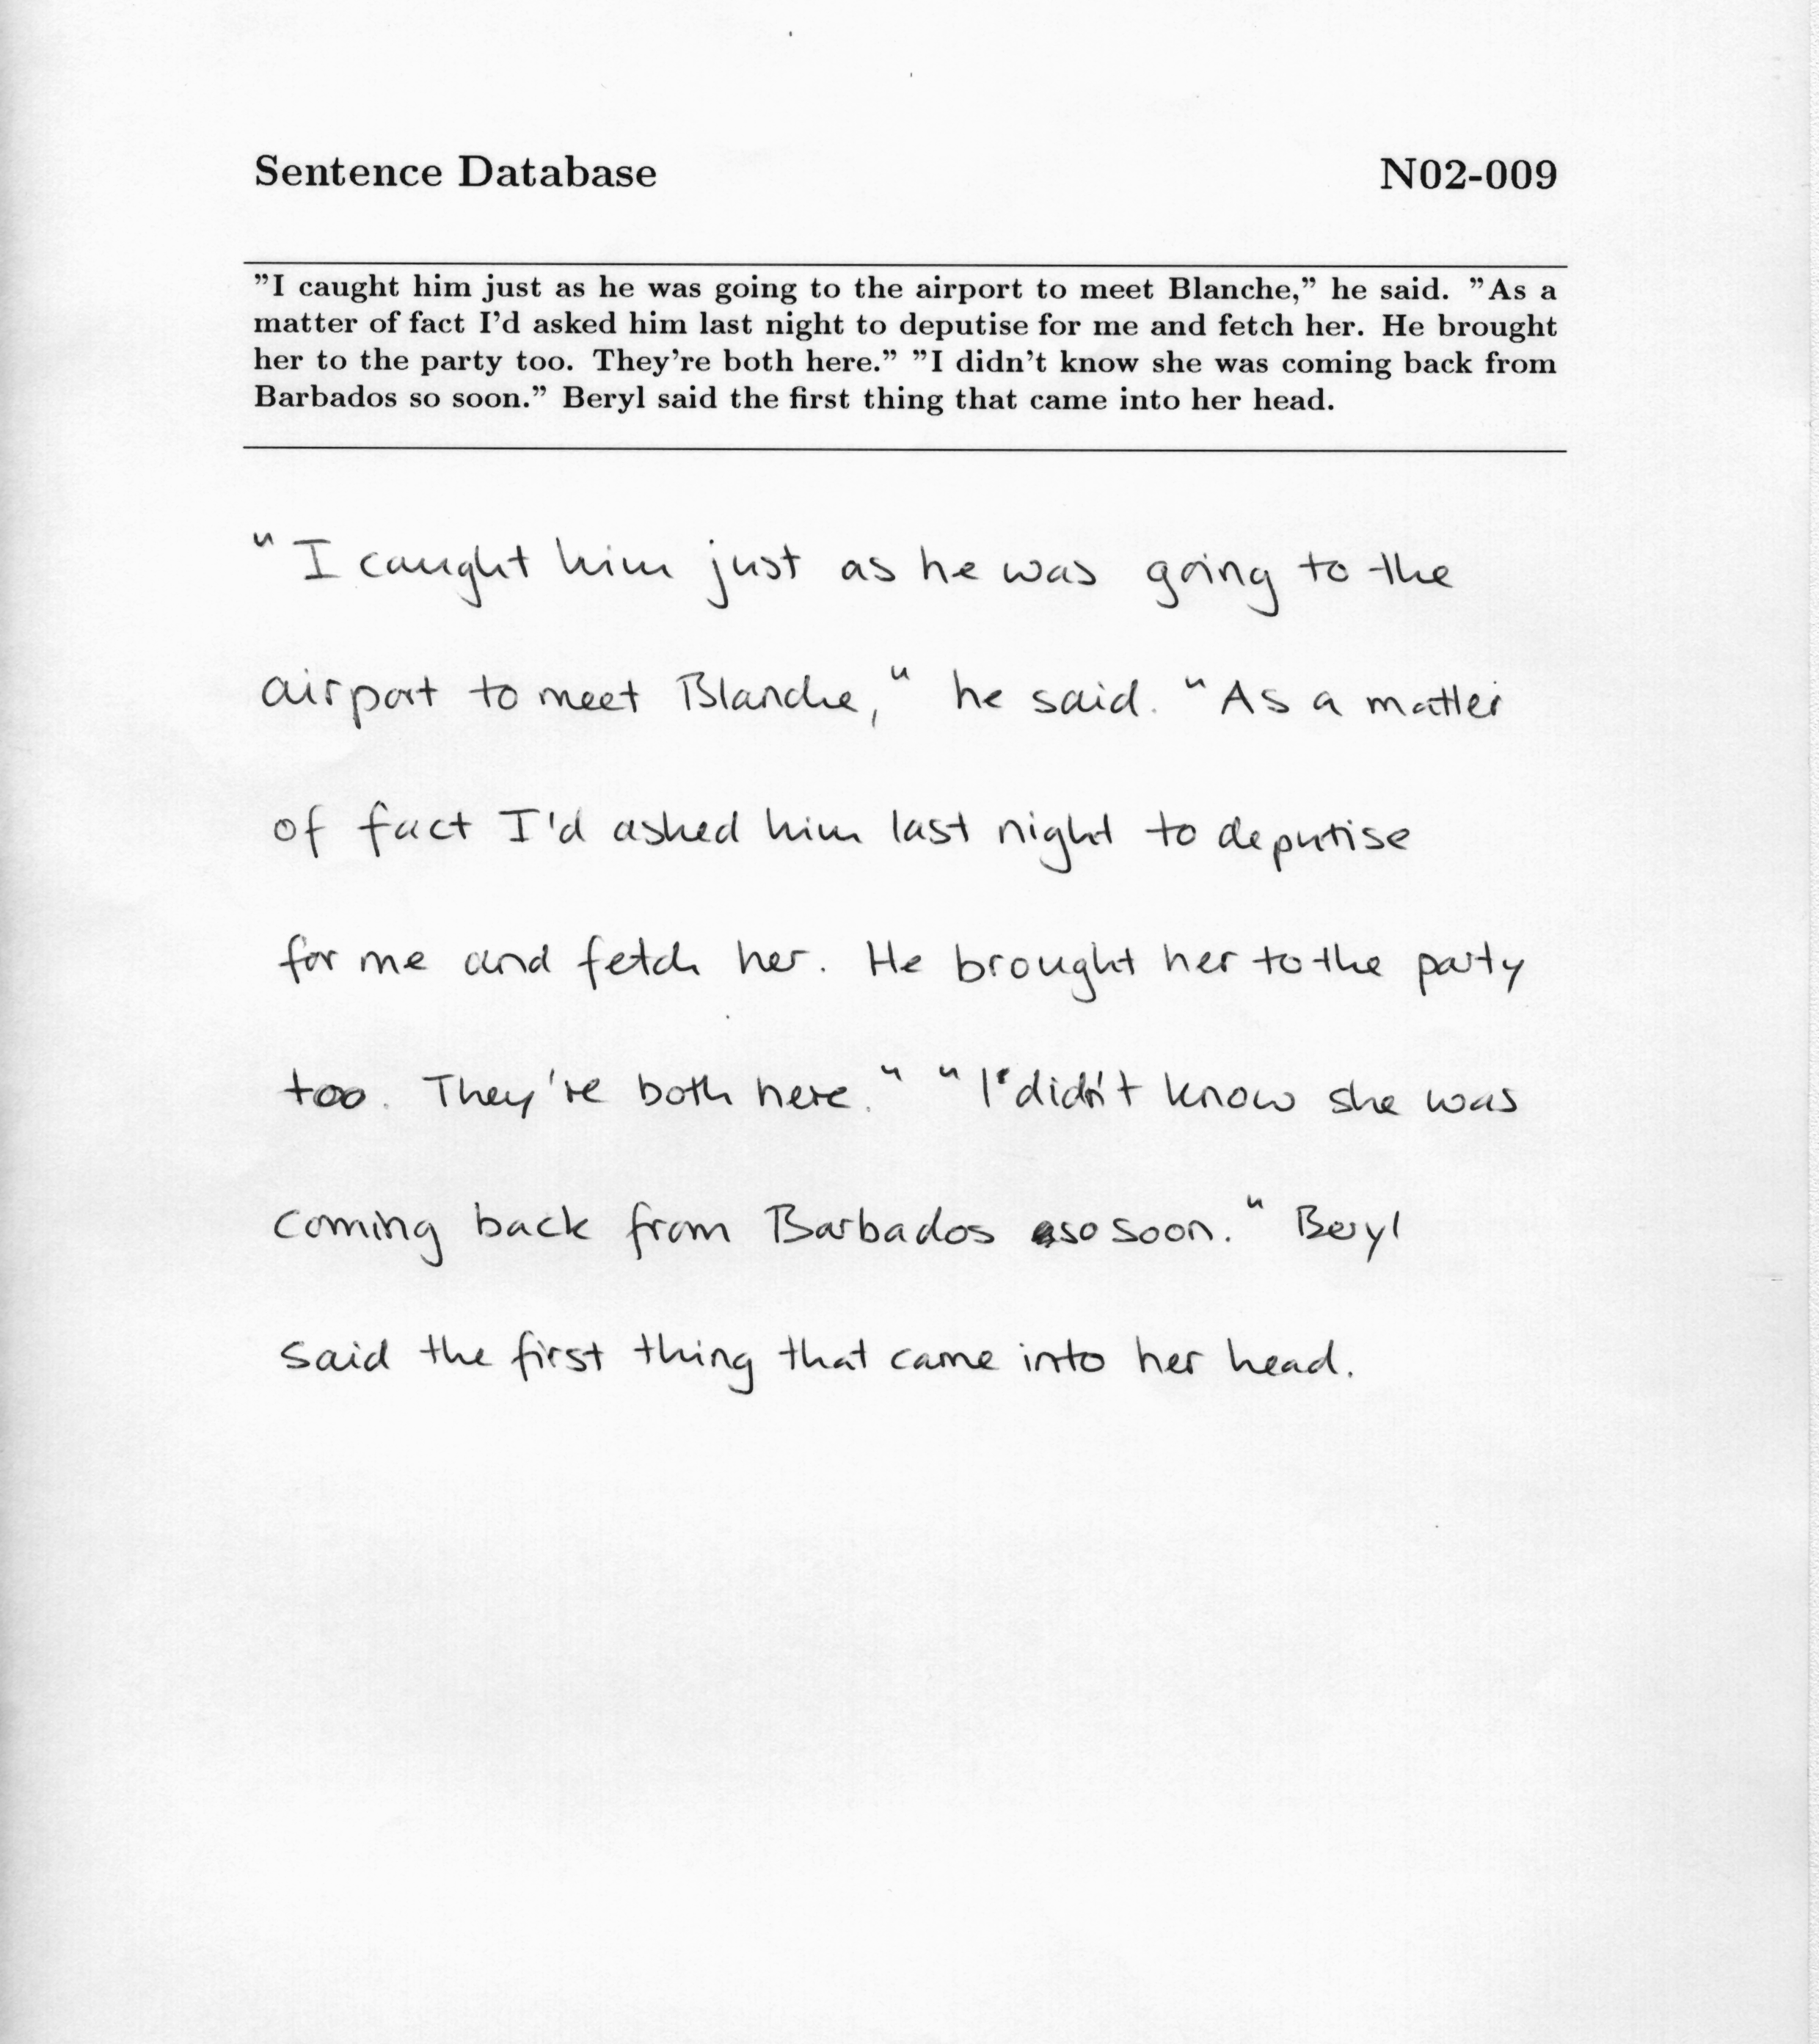 Sentence Database N02-009
”I caught him just as he was going to the airport to meet Blanche,” he said. ”As a
matter of fact I’d asked him last night to deputise for me and fetch her. He brought
her to the party too. They’re both here.” ”I didn’t know she was coming back from
Barbados so soon.” Beryl said the first thing that came into her head.
"I caught him just as he was going to the
airport to meet Blanche," he said. "As a matter
of fact I'd asked him last night to deputise
for me and fetch her. He brought her to the party
too. They're both here." "I didn't know she was
coming back from Barbados so soon." Beryl
said the first thing that came into her head.